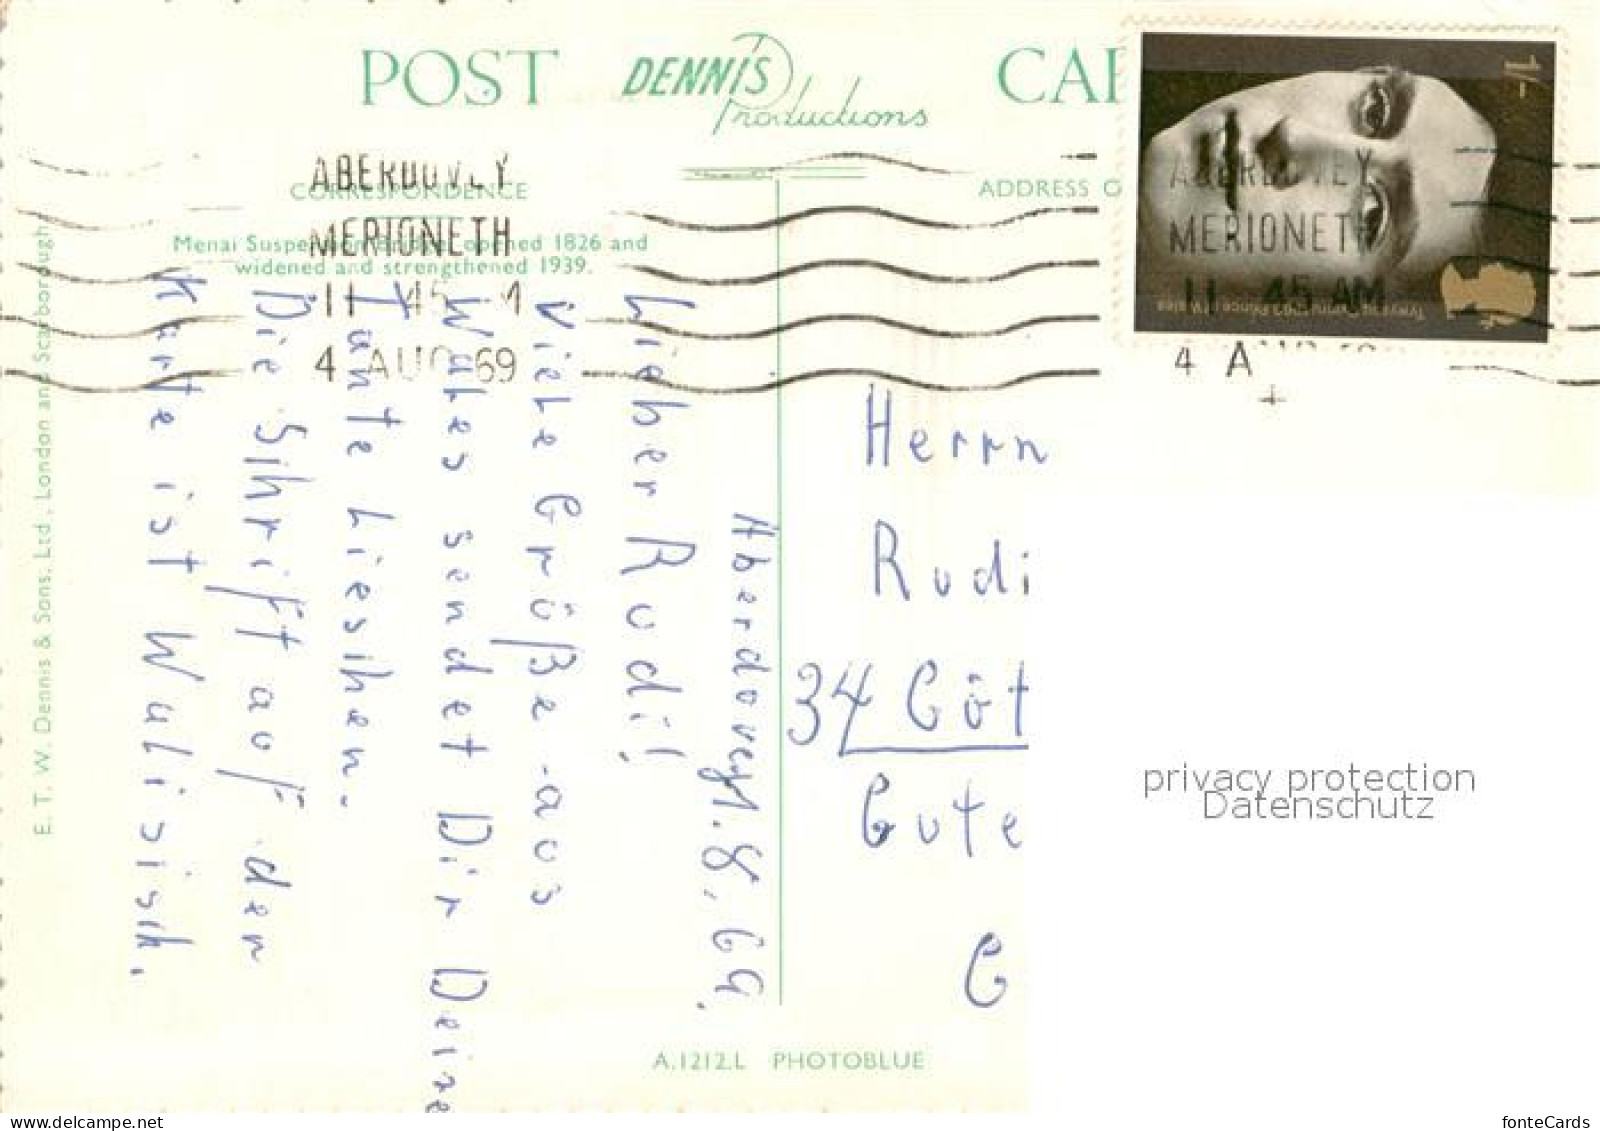 POST DENNIS Productions CAR
CORRESPONDENCE
ADDRESS O
Menai Suspension Bridge, opened 1826 and
widened and strengthened 1939.
ABERDOVEY
MERIONETH
11 45 AM
4 AUG 69
ABERDOVEY
MERIONETH
11 45 AM
4 A
1/-
E. T. W. Dennis & Sons, Ltd., London and Scarborough
Aberdovey 1.8.69.
Lieber Rudi!
Viele Grüße aus
Wales sendet Dir Deine
Tante Lieschen.
Die Schrift auf der
Karte ist Walisisch.
Herrn
Rudi
34 Göt
Gute
G
privacy protection
Datenschutz
A.1212.L PHOTOBLUE
www.delcampe.net
fonteCards